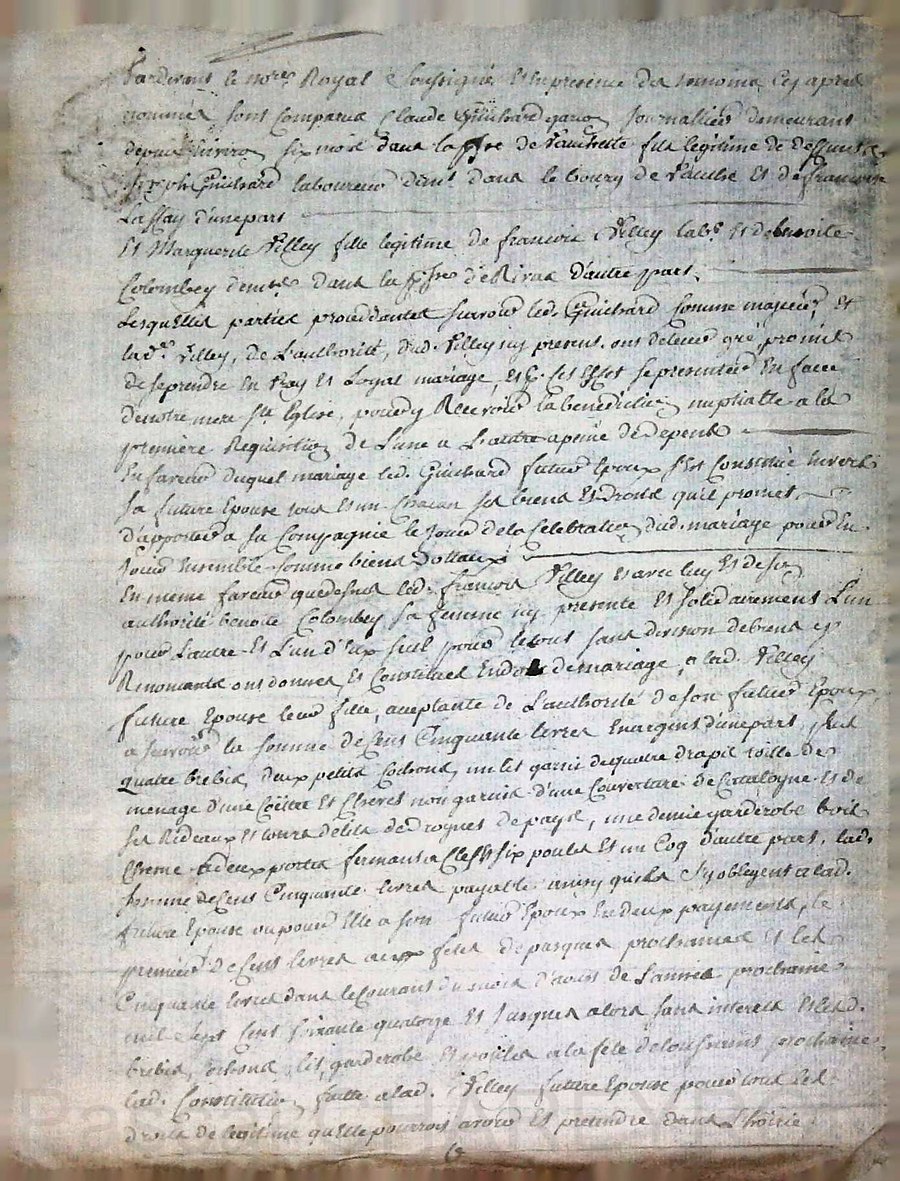 Pardevant le nore Royal soussigné Et en presence des temoins cy apres
nommés sont Comparus Claude Guichard garçon Journallier demeurant
depuis Environ six mois dans la psse de fils legitime de deffunt
Joseph Guichard laboureur demt dans le bourg de Et de françoise
Lassay d'une part
Et Marguerite Villey fille legitime de francois Villey labr Et de benoite
Colombey demts dans la psse de Rivas d'autre part.
Lesquelles parties proceddantes sçavoir led. Guichard comme majeur, Et
lad. Villey, de L'authorité, dud. Villey icy present, ont de leur gré, promis
de se prendre En vray Et Loyal mariage, Et a cet Effet se presenter En face
de notre mere ste Eglise, pour y Recevoir la benediction nuptialle a la
premiere Requisition de L'une a L'autre a peine de depens
En faveur duquel mariage led. Guichard futur Epoux s'est Constitué Envers
sa future Epouse tous Et un Chacun ses biens Et Droits qu'il promet
d'apporter a sa Compagnie le Jour de la Celebration dud. mariage pour En
Jouir Ensemble comme biens Dottaux
En meme faveur que dessus led. francois Villey Et avec luy Et de son
authorité benoite Colombey sa femme icy presente Et solidairement L'un
pour L'autre Et L'un d'Eux seul pour le tout sans division de biens y
Renonçants ont donnés Et Constitués En dot de mariage, a lad. Villey
future Epouse leur fille, acceptante de L'authorité de son futur Epoux
a sçavoir la somme de Cent Cinquante livres En argent d'une part, plus
quatre brebis, deux petits Cochons, un lit garni de quatre draps toille de
menage d'une Coëtre Et Chevet non garnis d'une Couverture de Catalogne Et de
ses Rideaux Et tours de lit de drognet de pays, une demie garderobe bois
Chesne a deux portes fermant a Clef Et six poules Et un Coq d'autre part, lad.
somme de Cent Cinquante livres payable ainsy qu'ils s'y obligent a lad.
future Epouse ou pour Elle a son futur Epoux En deux payements, le
premier de Cent livres aux fetes de pasques prochaines Et les
Cinquante livres dans le Courant du mois d'aout de L'année prochaine
mil sept Cent soixante quatorze Et Jusques alors sans interets Et lesd.
brebis, cochons, lit, garderobe Et a la fete de toussaints prochaine,
lad. Constitution faitte a lad. Villey future Epouse pour tous les
droits de legitime qu'Elle pourroit avoir Et pretendre dans L'hoirie